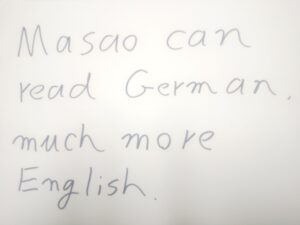 Masao can
read German,
much more
English.